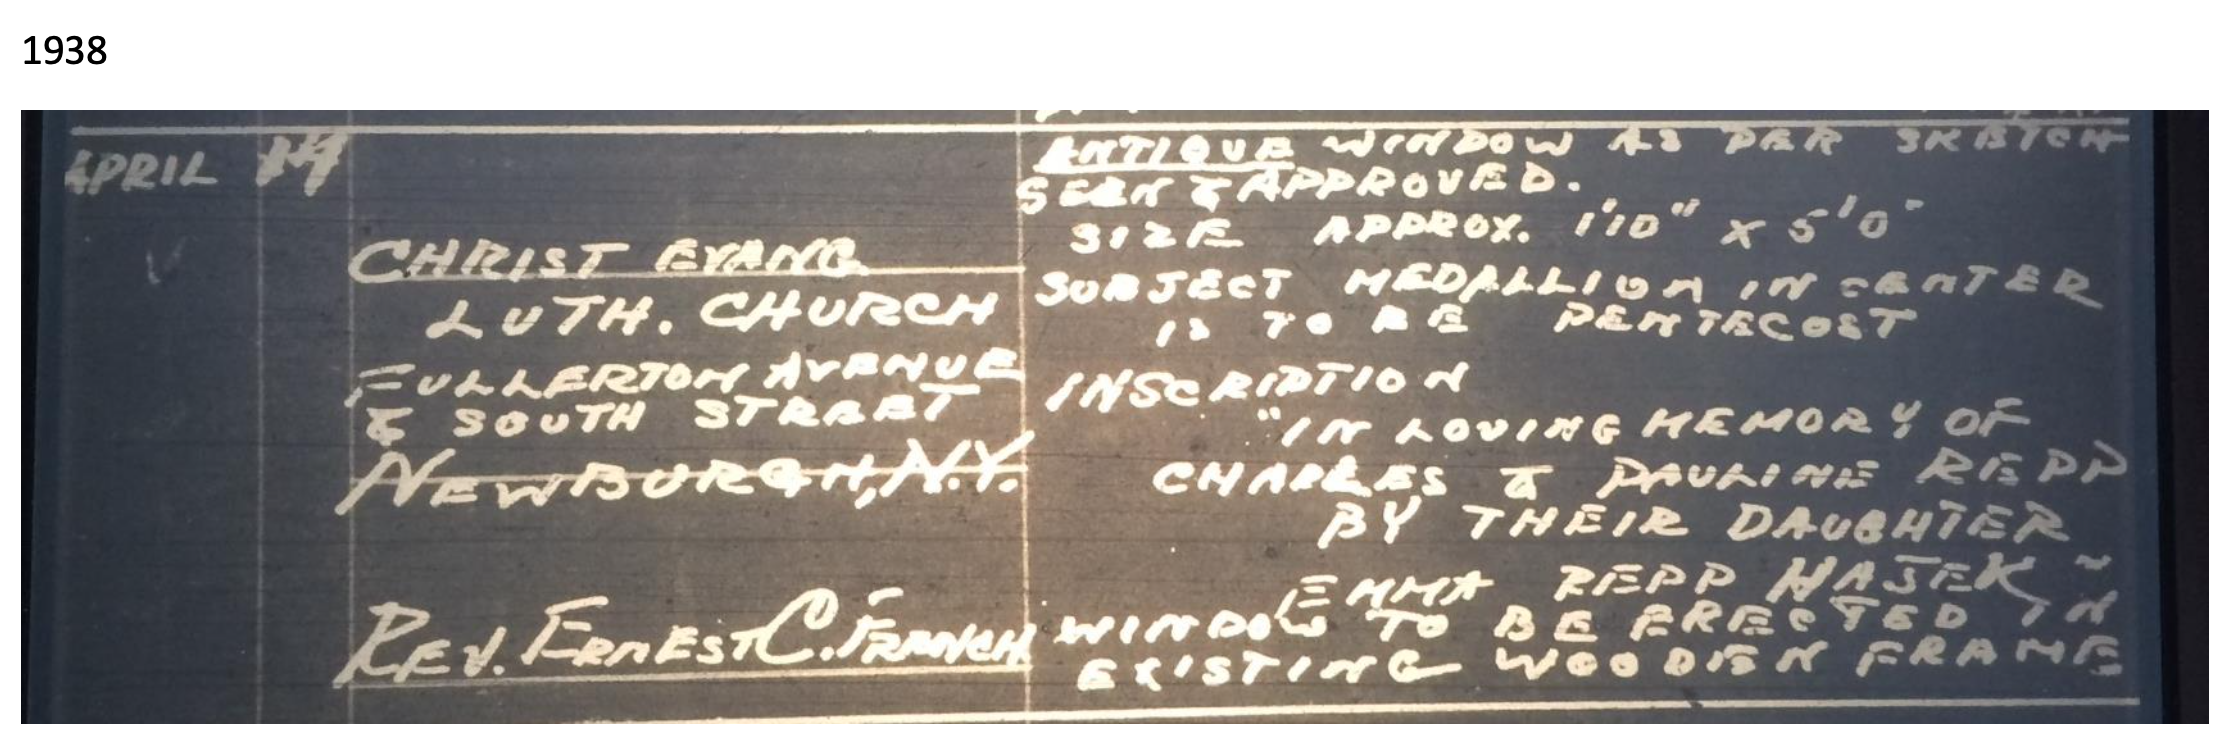 1938
APRIL
ANTIQUE WINDOW AS PER SKETCH
SEEN & APPROVED.
SIZE APPROX. 1'10" X 5'0"
CHRIST EVANG
LUTH. CHURCH
FULLERTON AVENUE
& SOUTH STREET
NEWBURGH, N.Y.
REV. ERNEST C. FRENCH
SUBJECT MEDALLION IN CENTER
IS TO BE PENTECOST
INSCRIPTION
"IN LOVING MEMORY OF
CHARLES & PAULINE REPP
BY THEIR DAUGHTER
EMMA REPP HAJEK ~
WINDOW TO BE ERECTED IN
EXISTING WOODEN FRAME